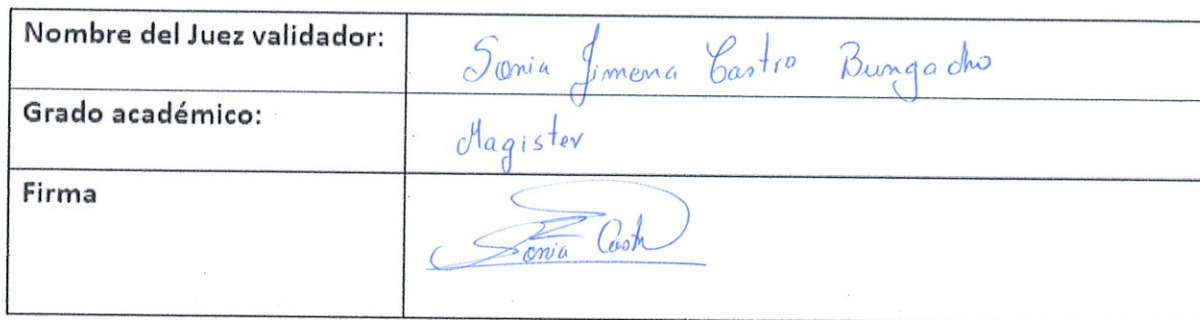 Nombre del Juez validador: Sonia Jimena Castro Bungacho
Grado académico: Magister
Firma Sonia Cast